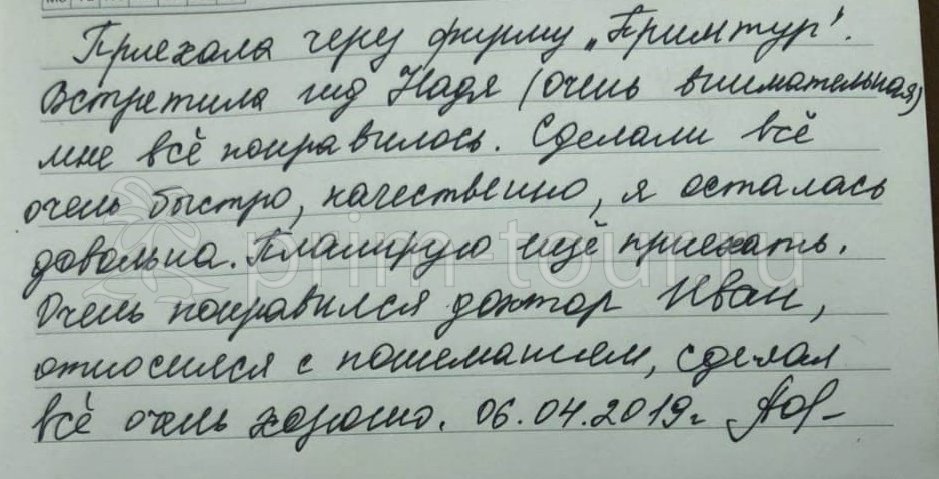 Приехала через фирму „Примтур".
Встретила гид Надя (очень внимательная)
мне всё понравилось. Сделали всё
очень быстро, качественно, я осталась
довольна. Планирую ещё приехать.
Очень понравился доктор Иван,
относился с пониманием, сделал
всё очень хорошо. 06.04.2019г
prim-tour.ru